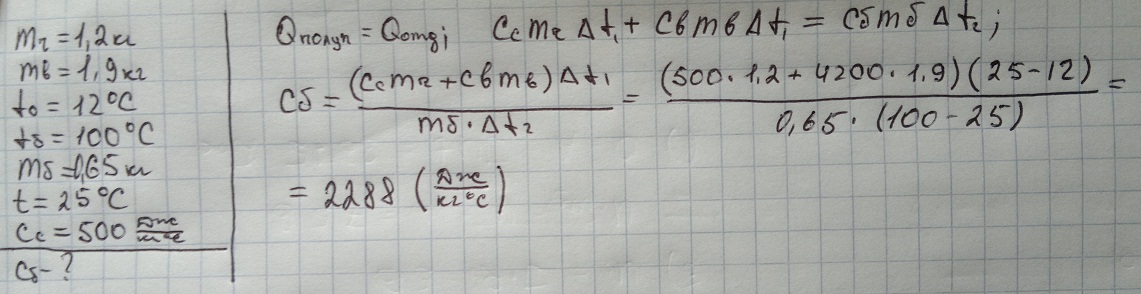 m₂ = 1,2кг
mв = 1,9кг
t₀ = 12°C
tδ = 100°C
mδ = 0,65 кг
t = 25°C
Cc = 500 Дж/кг°C
Cδ - ?
Qполуч = Qотд; Ccm₂Δt₁ + CвmвΔt₁ = CδmδΔt₂;
Cδ = (Ccm₂ + Cвmв)Δt₁ / mδ·Δt₂ = (500·1,2 + 4200·1,9)(25-12) / 0,65·(100-25) =
= 2288 (Дж/кг°C)